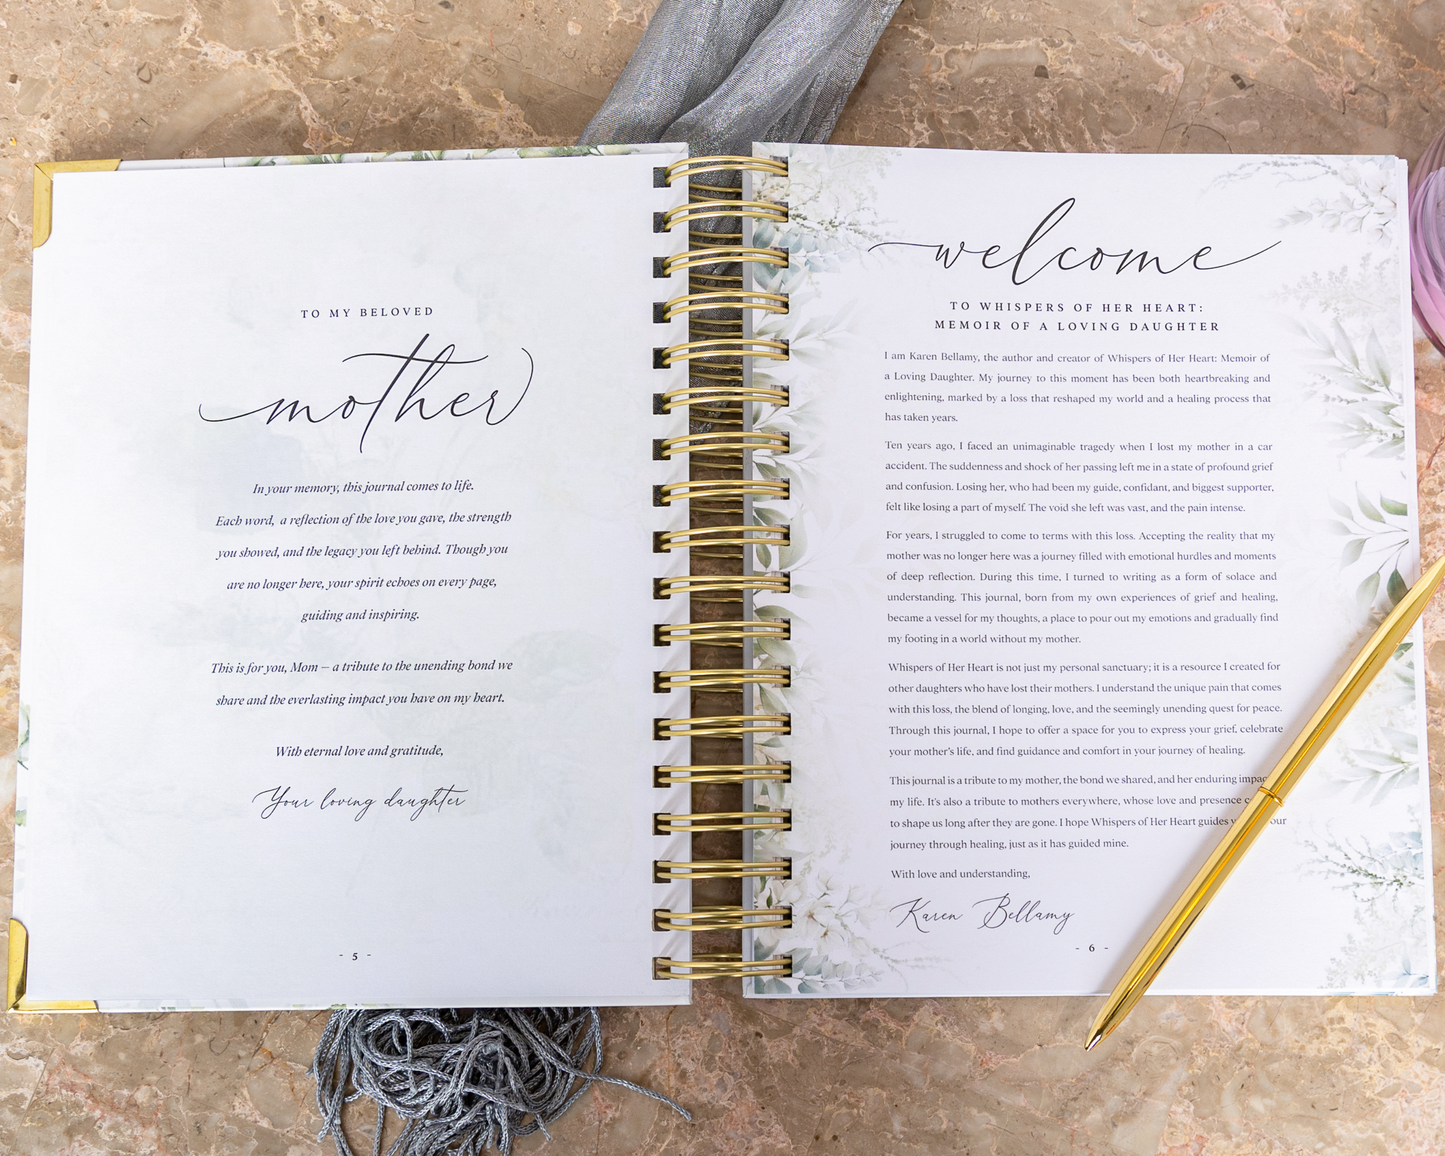 TO MY BELOVED
mother
In your memory, this journal comes to life.
Each word, a reflection of the love you gave, the strength
you showed, and the legacy you left behind. Though you
are no longer here, your spirit echoes on every page,
guiding and inspiring.
This is for you, Mom – a tribute to the unending bond we
share and the everlasting impact you have on my heart.
With eternal love and gratitude,
Your loving daughter
- 5 -
welcome
TO WHISPERS OF HER HEART:
MEMOIR OF A LOVING DAUGHTER
I am Karen Bellamy, the author and creator of Whispers of Her Heart: Memoir of
a Loving Daughter. My journey to this moment has been both heartbreaking and
enlightening, marked by a loss that reshaped my world and a healing process that
has taken years.
Ten years ago, I faced an unimaginable tragedy when I lost my mother in a car
accident. The suddenness and shock of her passing left me in a state of profound grief
and confusion. Losing her, who had been my guide, confidant, and biggest supporter,
felt like losing a part of myself. The void she left was vast, and the pain intense.
For years, I struggled to come to terms with this loss. Accepting the reality that my
mother was no longer here was a journey filled with emotional hurdles and moments
of deep reflection. During this time, I turned to writing as a form of solace and
understanding. This journal, born from my own experiences of grief and healing,
became a vessel for my thoughts, a place to pour out my emotions and gradually find
my footing in a world without my mother.
Whispers of Her Heart is not just my personal sanctuary; it is a resource I created for
other daughters who have lost their mothers. I understand the unique pain that comes
with this loss, the blend of longing, love, and the seemingly unending quest for peace.
Through this journal, I hope to offer a space for you to express your grief, celebrate
your mother's life, and find guidance and comfort in your journey of healing.
This journal is a tribute to my mother, the bond we shared, and her enduring
my life. It's also a tribute to mothers everywhere, whose love and presence
to shape us long after they are gone. I hope Whispers of Her Heart guides
journey through healing, just as it has guided mine.
With love and understanding,
Karen Bellamy
- 6 -